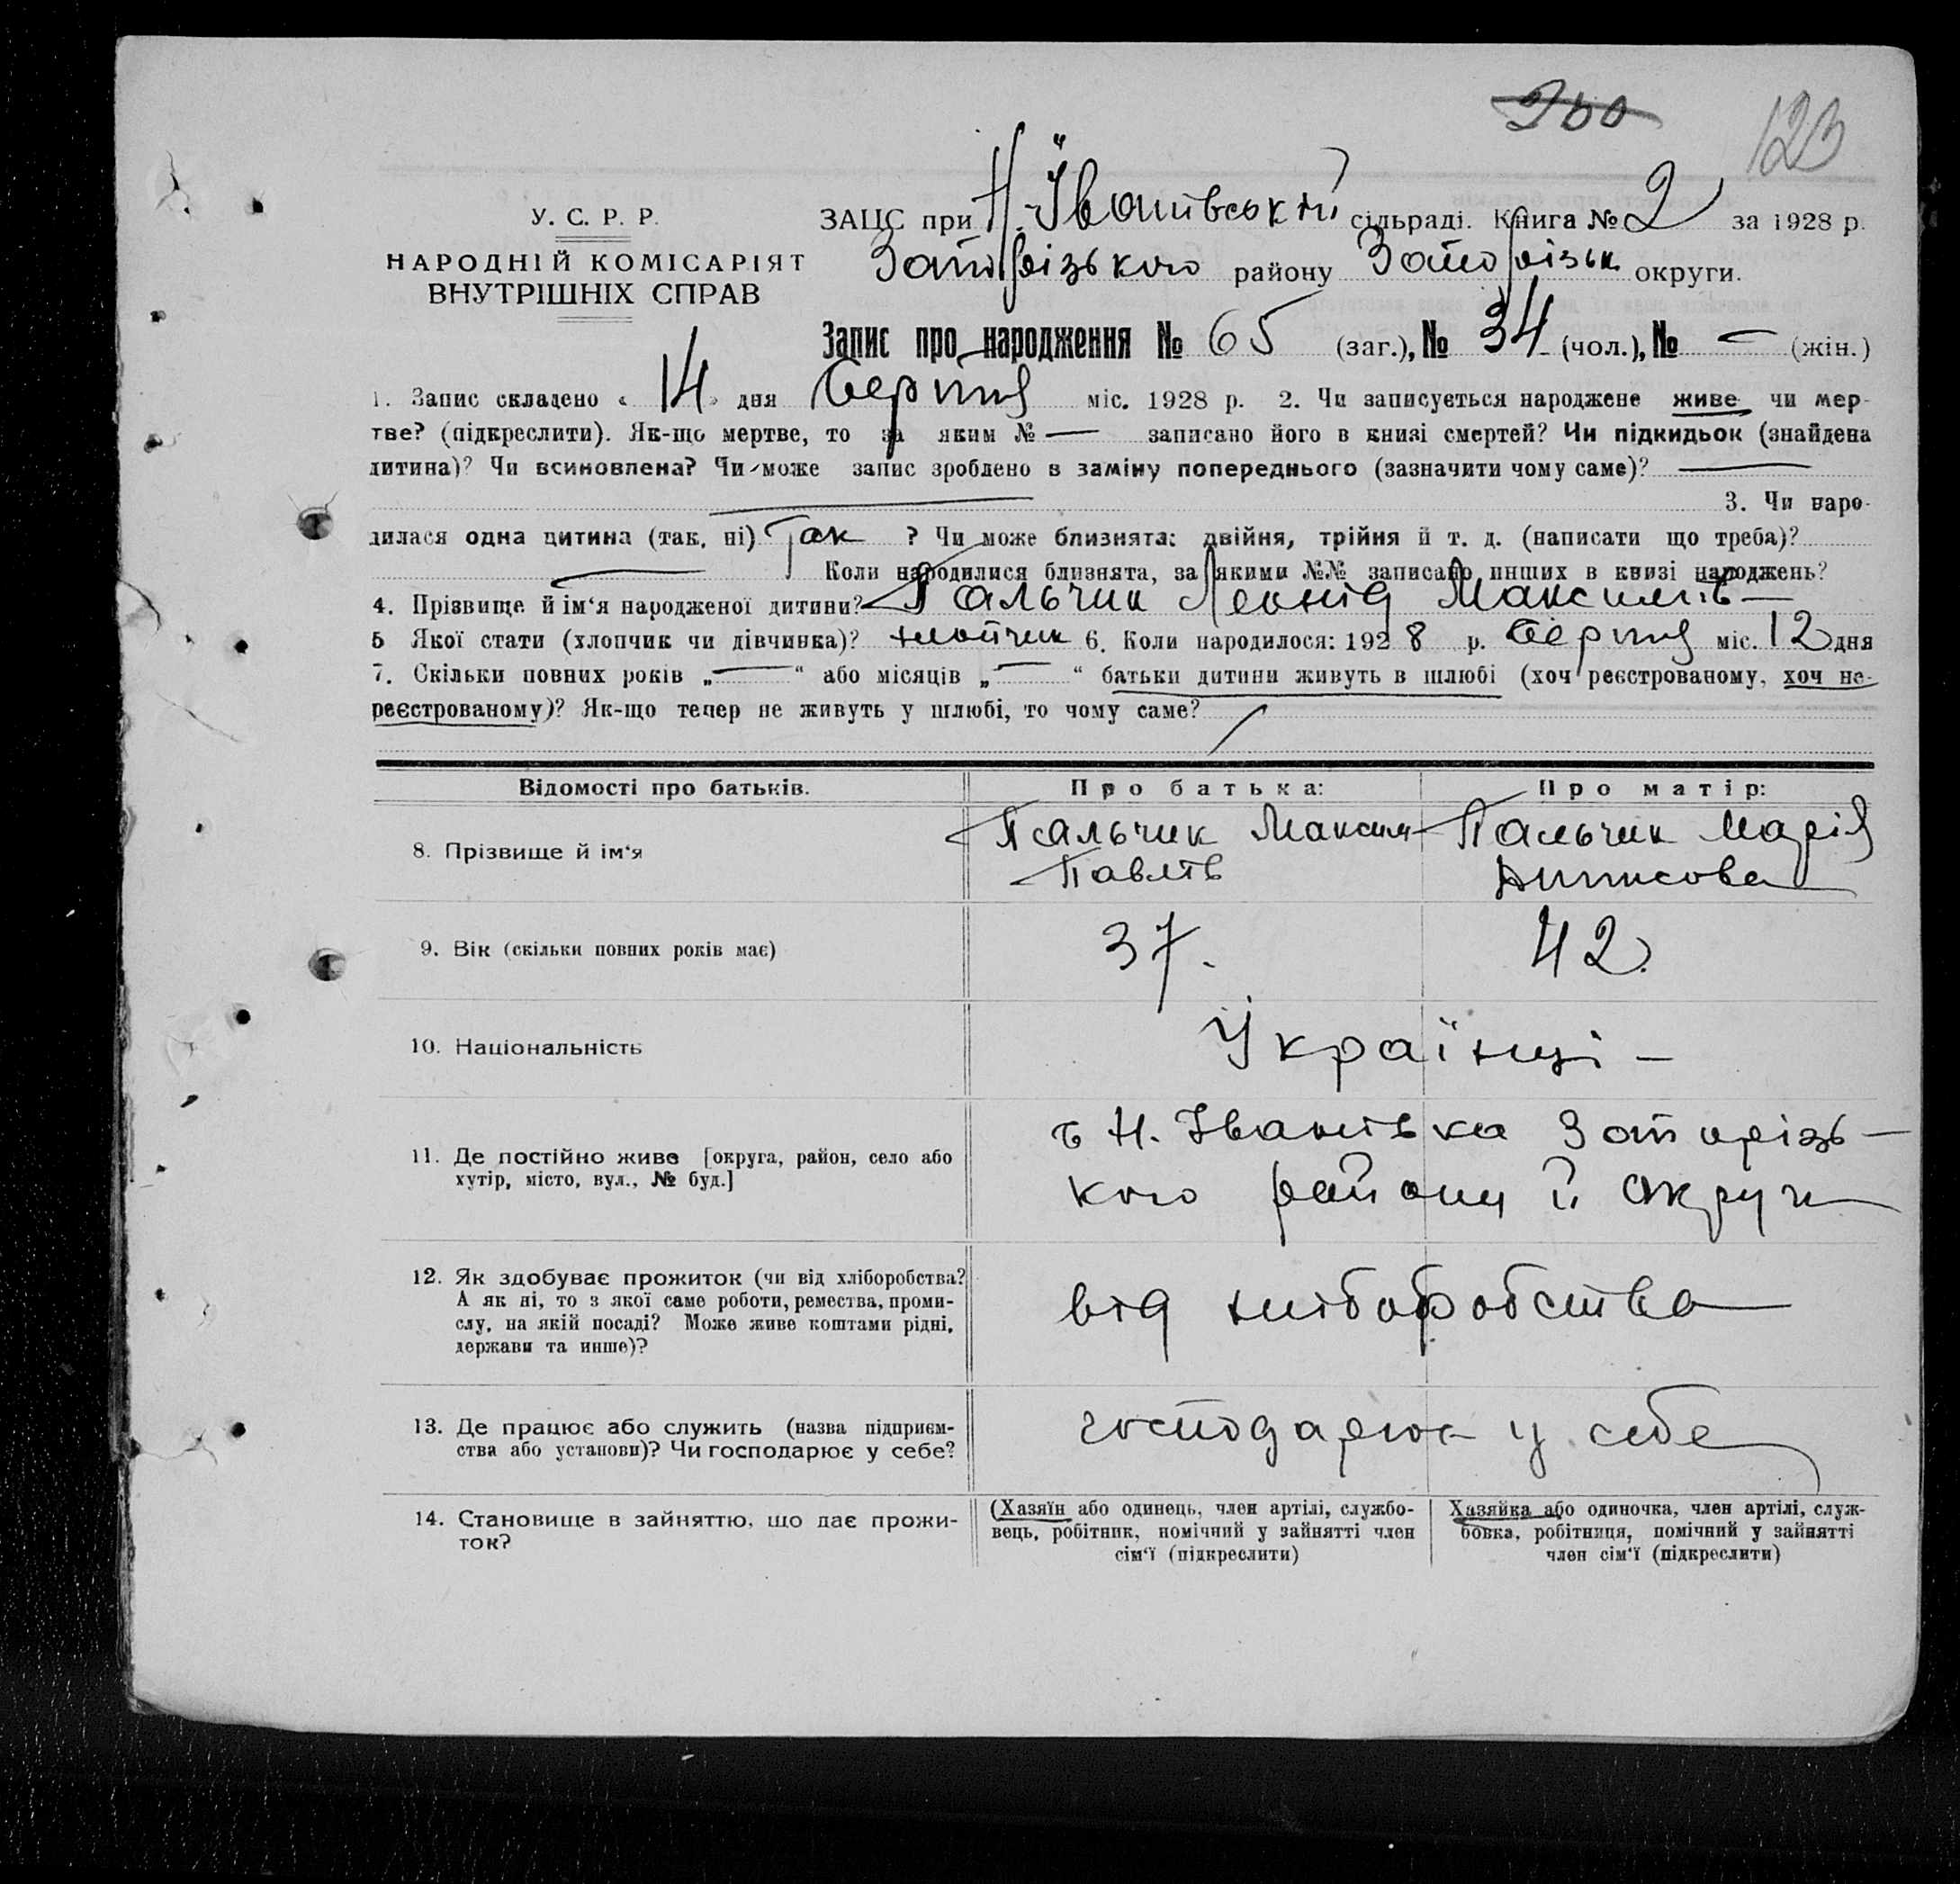 200
123
У. С. Р. Р.
НАРОДНІЙ КОМІСАРІЯТ
ВНУТРІШНІХ СПРАВ
ЗАЦС при Н.-Іванівській сільраді. Книга № 2 за 1928 р.
Запорізького району Запорізьк округи.
Запис про народження № 65 (заг.), № 34 (чол.), № — (жін.)
1. Запис складено « 14 » дня Серпня міс. 1928 р. 2. Чи записується народжене живе чи мер-
тве? (підкреслити). Як-що мертве, то за яким № — записано його в книзі смертей? Чи підкидьок (знайдена
дитина)? Чи всиновлена? Чи може запис зроблено в заміну попереднього (зазначити чому саме)? —
— 3. Чи наро-
дилася одна дитина (так, ні) Так ? Чи може близнята: двійня, трійня й т. д. (написати що треба)?
— Коли народилися близнята, за якими №№ записано инших в книзі народжень?
4. Прізвище й ім‘я народженої дитини? Пальчик Леонід Максимів —
5 Якої стати (хлопчик чи дівчинка)? хлопчик 6. Коли народилося: 1928 р. Серпня міс. 12 дня
7. Скільки повних років „—“ або місяців „—“ батьки дитини живуть в шлюбі (хоч реєстрованому, хоч не-
реєстрованому)? Як-що тепер не живуть у шлюбі, то чому саме?
Відомості про батьків. Про батька: Про матір:
8. Прізвище й ім‘я Пальчик Максим Павлів Пальчик Марія
9. Вік (скільки повних років має) 37. 42.
10. Національність Українці —
11. Де постійно живе [округа, район, село або
хутір, місто, вул., № буд.]
Н. Іванівка Запорізь-
кого району й округи
12. Як здобуває прожиток (чи від хліборобства?
А як ні, то з якої саме роботи, ремества, проми-
слу, на якій посаді? Може живе коштами рідні,
держави та инше)?
від хліборобства
13. Де працює або служить (назва підприєм-
ства або установи)? Чи господарює у себе?
господарює у себе
14. Становище в зайняттю, що дає прожи-
ток?
(Хазяїн або одинець, член артілі, службо-
вець, робітник, помічний у зайнятті член
сім‘ї (підкреслити)
Хазяйка або одиночка, член артілі, служ-
бовка, робітниця, помічний у зайнятті
член сім‘ї (підкреслити)